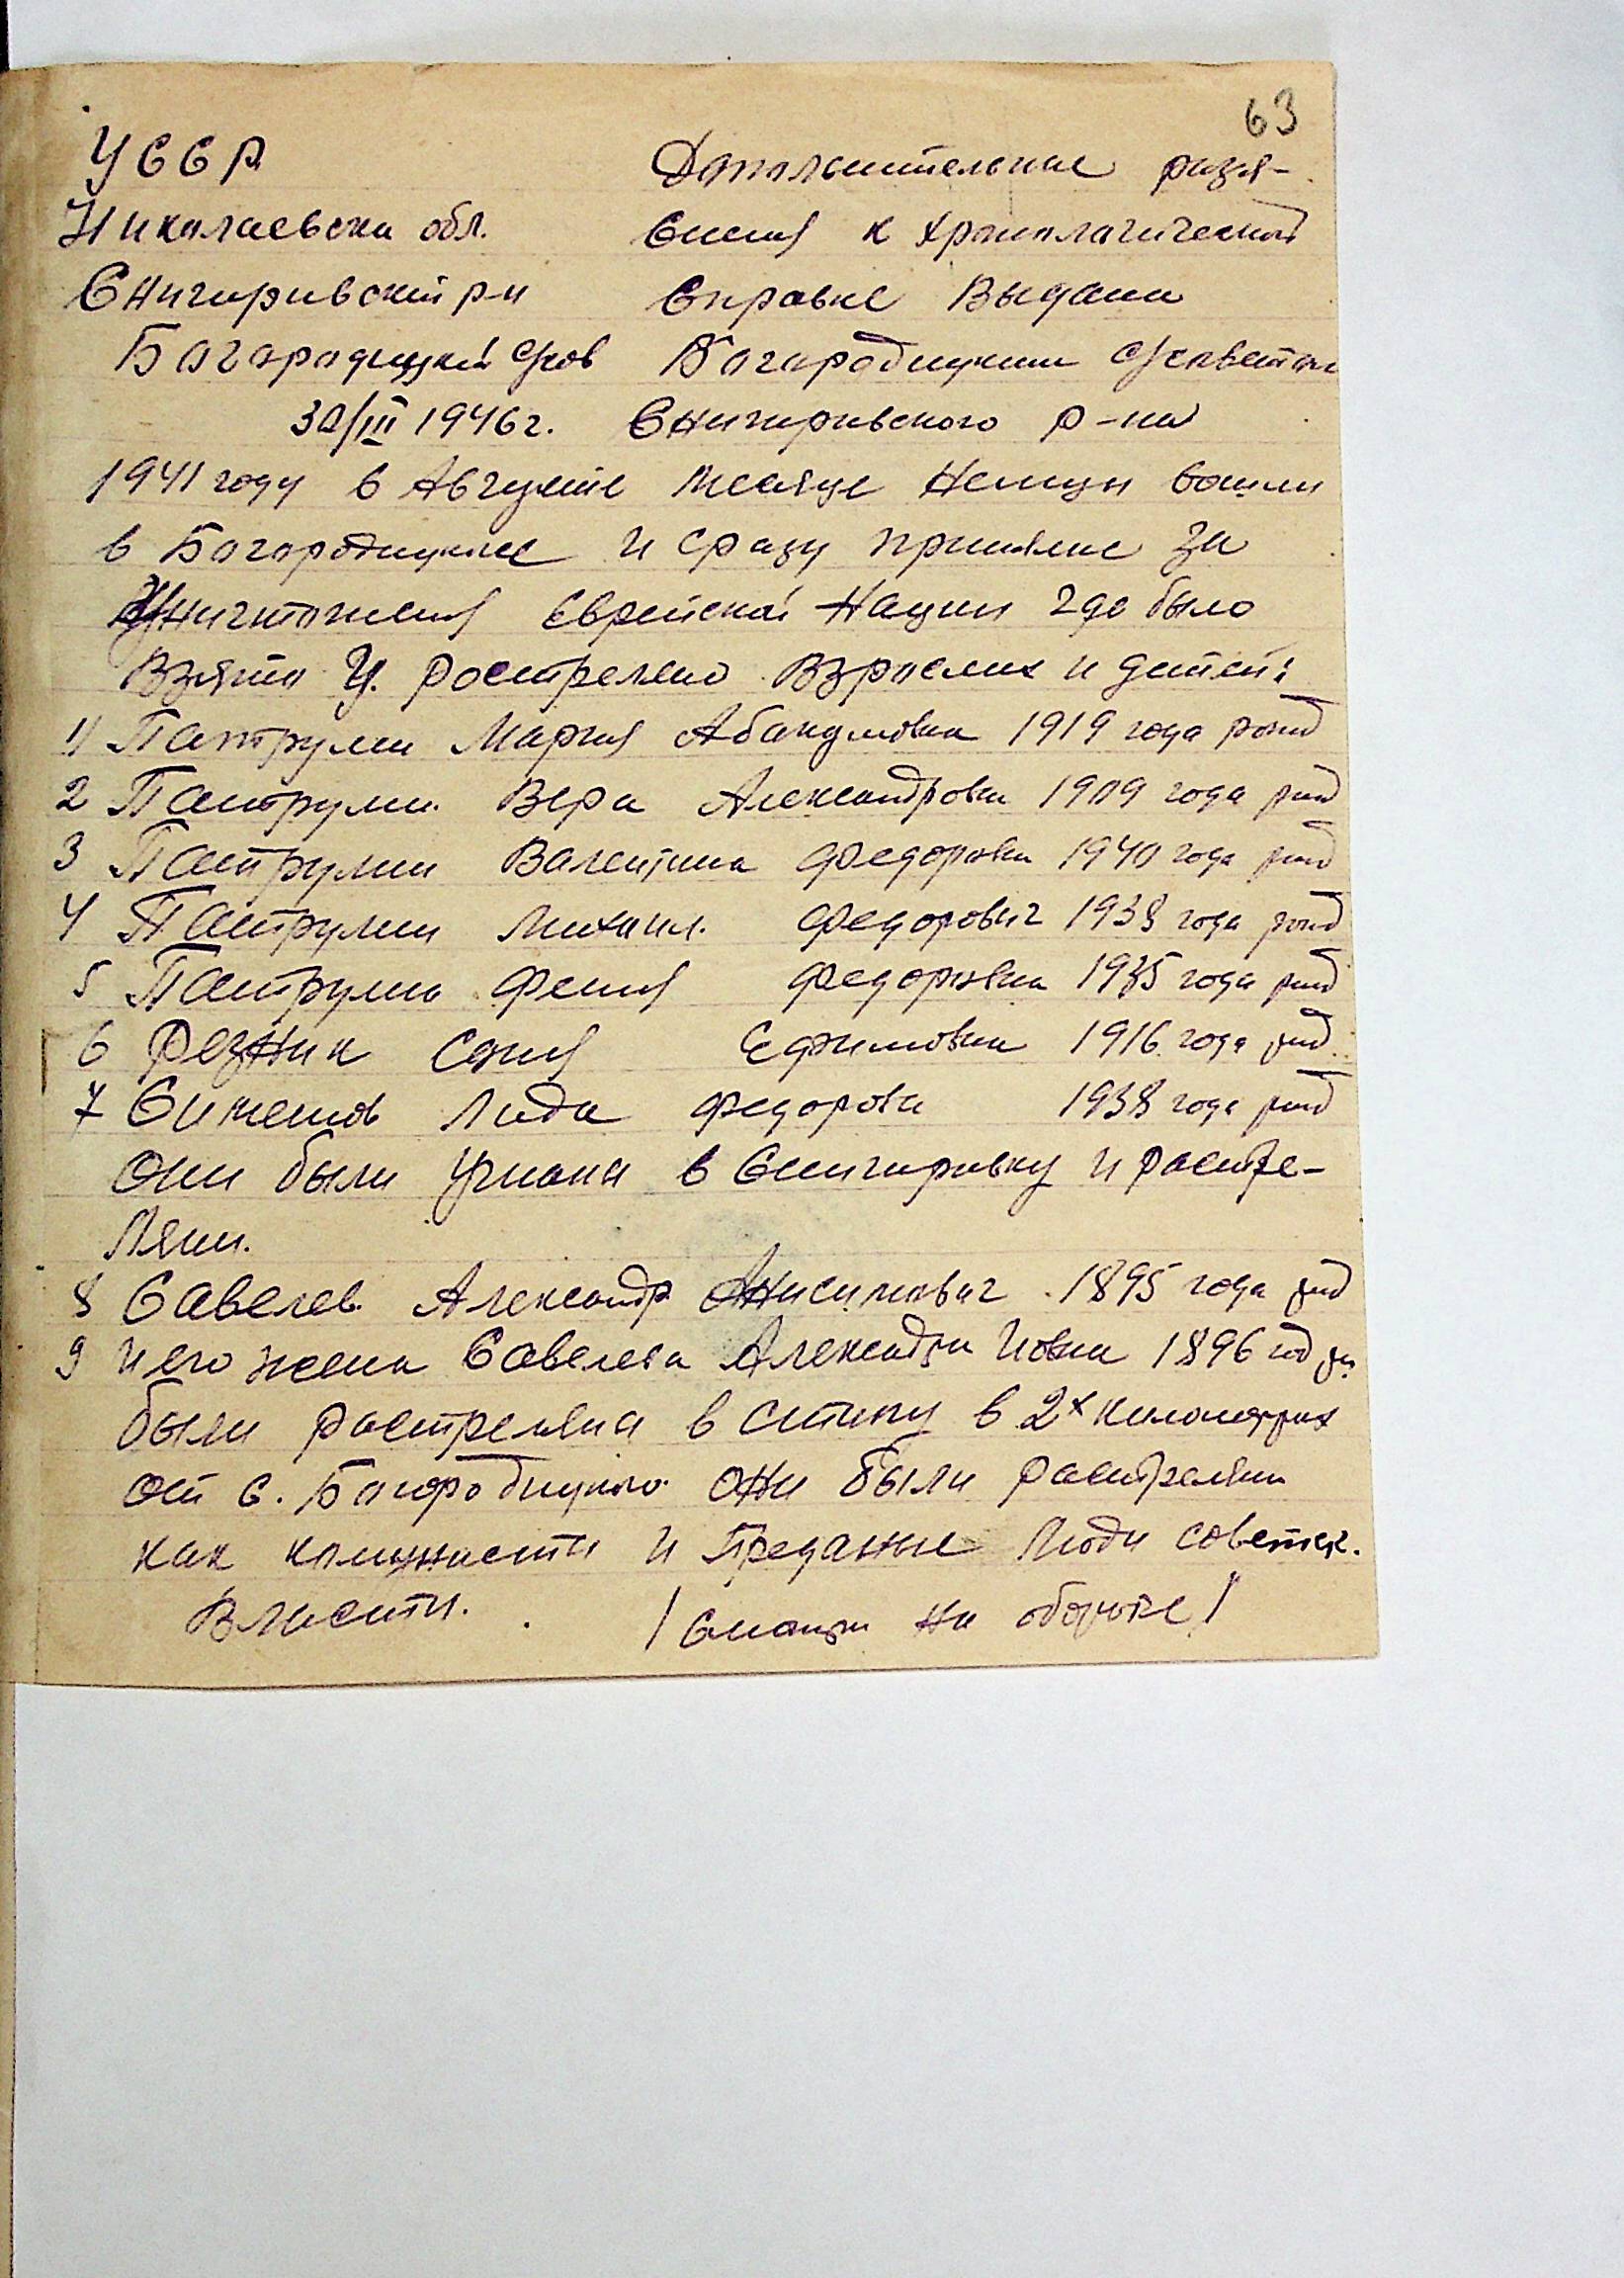 63
УССР
Николаевска обл.
Снигиривский р-н
Богородицкий с/сов
30/III 1946 г.
Дополнительные разя-
снения к хронологической
справке Выдана
Богородицким с/советом
Снигиривского р-на
1941 году в Августе месяце Немцы вошли
в Богородицкие и сразу принялис за
Уничтожения Еврейской Нации где было
Взято и ростреляно Взрослих и детей:
1) Мария 1919 года рожд
2 Вера Александровна 1909 года рожд
3 Валентина Федоровна 1940 года рожд
4 Михаил. Федорович 1938 года рожд
5 Фения Федоровна 1935 года рожд
6 Резник Соня Ефимовна 1916 года рожд
7 Лида Федоровна 1938 года рожд
Они были угнаны в Снигировку и растре-
ляни.
8 Савелев. Александр Анисимович 1895 года рожд
9 и его жена Савелева Александра 1896 год рж
были растреляни в степу в 2х километрах
от с. Богородицкого они были растреляни
как комунисти и Преданые люди советск.
Власти. /Смотри на обороте/